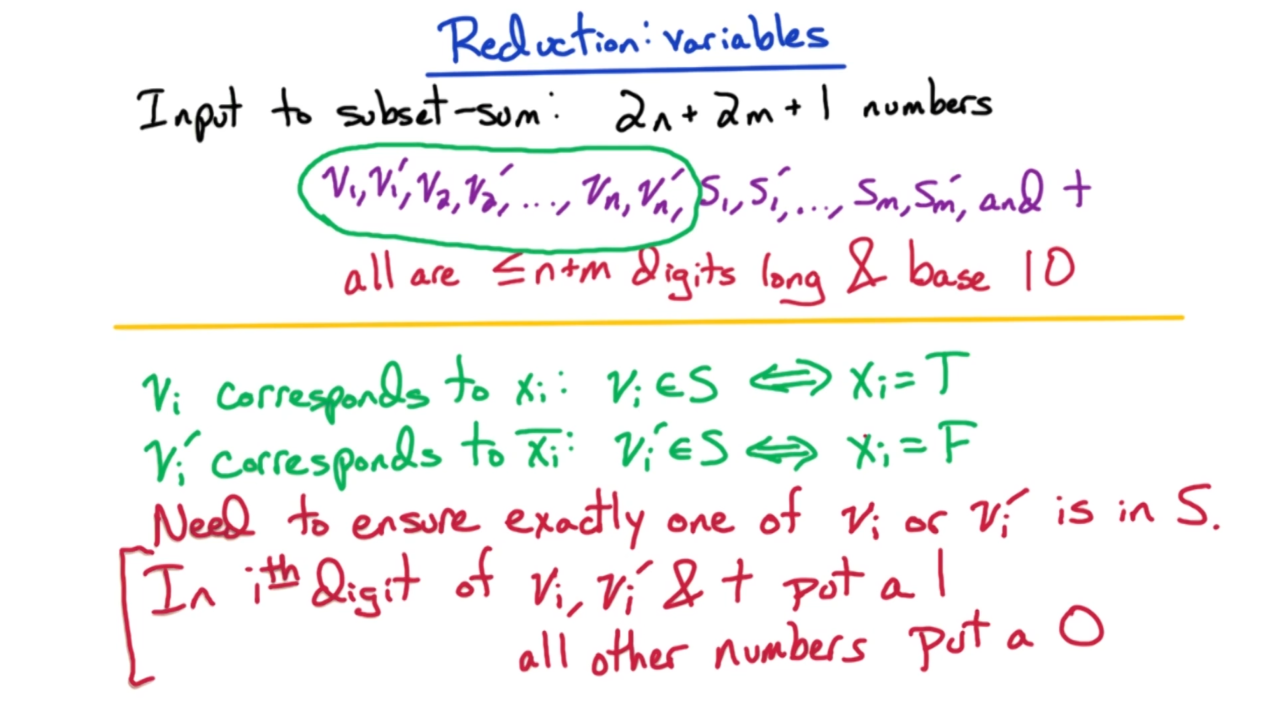 Reduction: variables
Input to subset-sum: 2n + 2m + 1 numbers
v₁, v₁′, v₂, v₂′, ..., vₙ, vₙ′, s₁, s₁′, ..., sₘ, sₘ′, and t
all are ≤ n+m digits long & base 10
vᵢ corresponds to xᵢ: vᵢ ∈ S ⟺ xᵢ = T
vᵢ′ corresponds to x̅ᵢ: vᵢ′ ∈ S ⟺ xᵢ = F
Need to ensure exactly one of vᵢ or vᵢ′ is in S.
In iᵗʰ digit of vᵢ, vᵢ′ & t put a 1
all other numbers put a 0